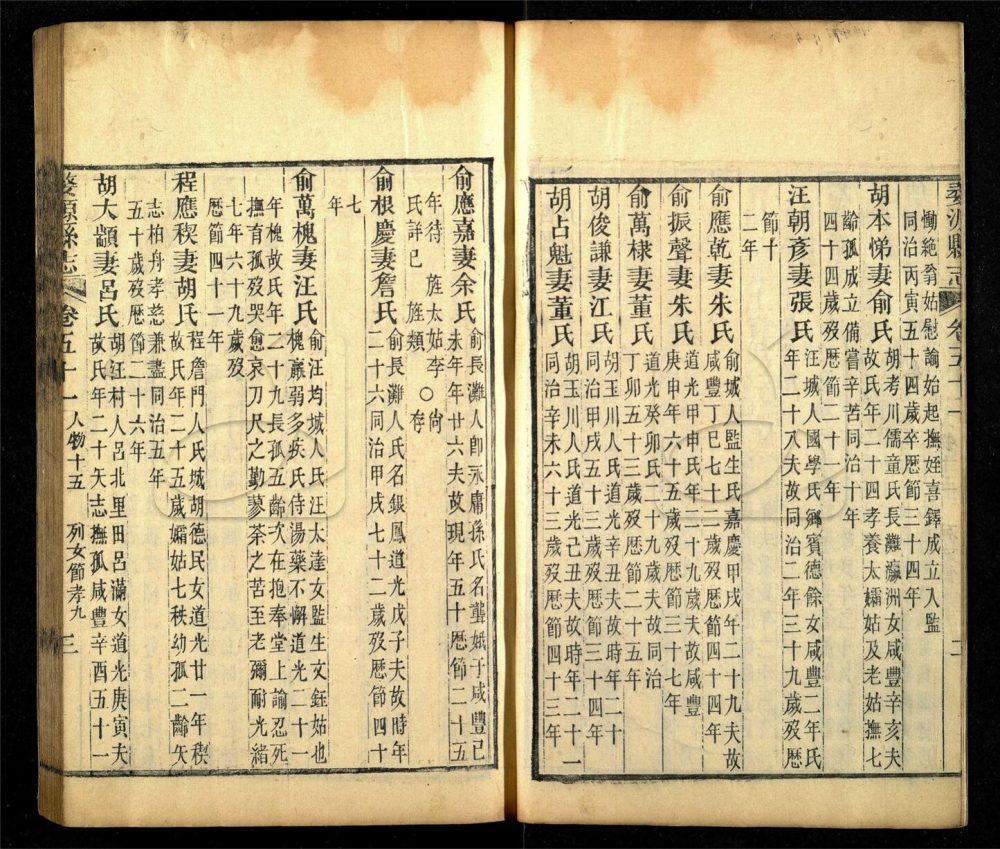 婺源縣志 卷五十一 二
慟絶翁姑慰諭始起撫姪喜鐸成立入監
同治丙寅五十四歲卒歷節三十四年
胡本悌妻俞氏
胡考川儒童氏長灘瀛洲女咸豐辛亥夫
故氏年二十四孝養太孀姑及老姑撫七
齡孤成立備嘗辛苦同治十年
四十四歲歿歷節二十一年
汪朝彥妻張氏
汪城人國學氏鄉賓德餘女咸豐二年氏
年二十八夫故同治二年三十九歲歿歷
節十
二年
俞應乾妻朱氏
俞城人監生氏嘉慶甲戌年二十九夫故
咸豐丁巳七十二歲歿歷節四十四年
俞振聲妻朱氏
道光甲申氏年二十九歲夫故咸豐
庚申年六十五歲歿歷節三十七年
俞萬棣妻董氏
道光癸卯氏二十九歲夫故同治
丁卯五十三歲歿歷節二十五年
胡俊謙妻江氏
胡玉川人氏道光辛丑夫故時年二十
同治甲戌五十三歲歿歷節三十四年
胡占魁妻董氏
胡玉川人氏道光己丑夫故時年二十一
同治辛未六十三歲歿歷節四十三年
俞應嘉妻余氏
俞長灘人卽永庸孫氏名龔娥于咸豐已
未年年廿六夫故現年五十歷節二十五
年待 旌太姑李○尙
氏詳已 旌類 存
俞根慶妻詹氏
俞長灘人氏名銀鳳道光戊子夫故時年
二十六同治甲戌七十二歲歿歷節四十
七
年
俞萬槐妻汪氏
俞汪均城人氏汪太逵女監生文鈺姑也
槐羸弱多疾氏侍湯藥不懈道光二十一
年槐故氏年二十九長孤五齡次在抱奉堂上諭忍死
撫育孤歿哭愈哀刀尺之勤蓼茶之苦至老彌耐光緒
七年六十九歲歿
歷節四十一年
程應稧妻胡氏
程詹門人氏城胡德民女道光廿一年稧
故氏年二十五歲孀姑七秩幼孤二齡矢
志柏舟孝慈兼盡同治五年
五十歲歿歷節二十六年
胡大顓妻呂氏
胡江村人呂北里田呂滿女道光庚寅夫
故氏年二十矢志撫孤咸豐辛酉五十一
婺源縣志 卷五十一 人物十五 列女節孝九 三